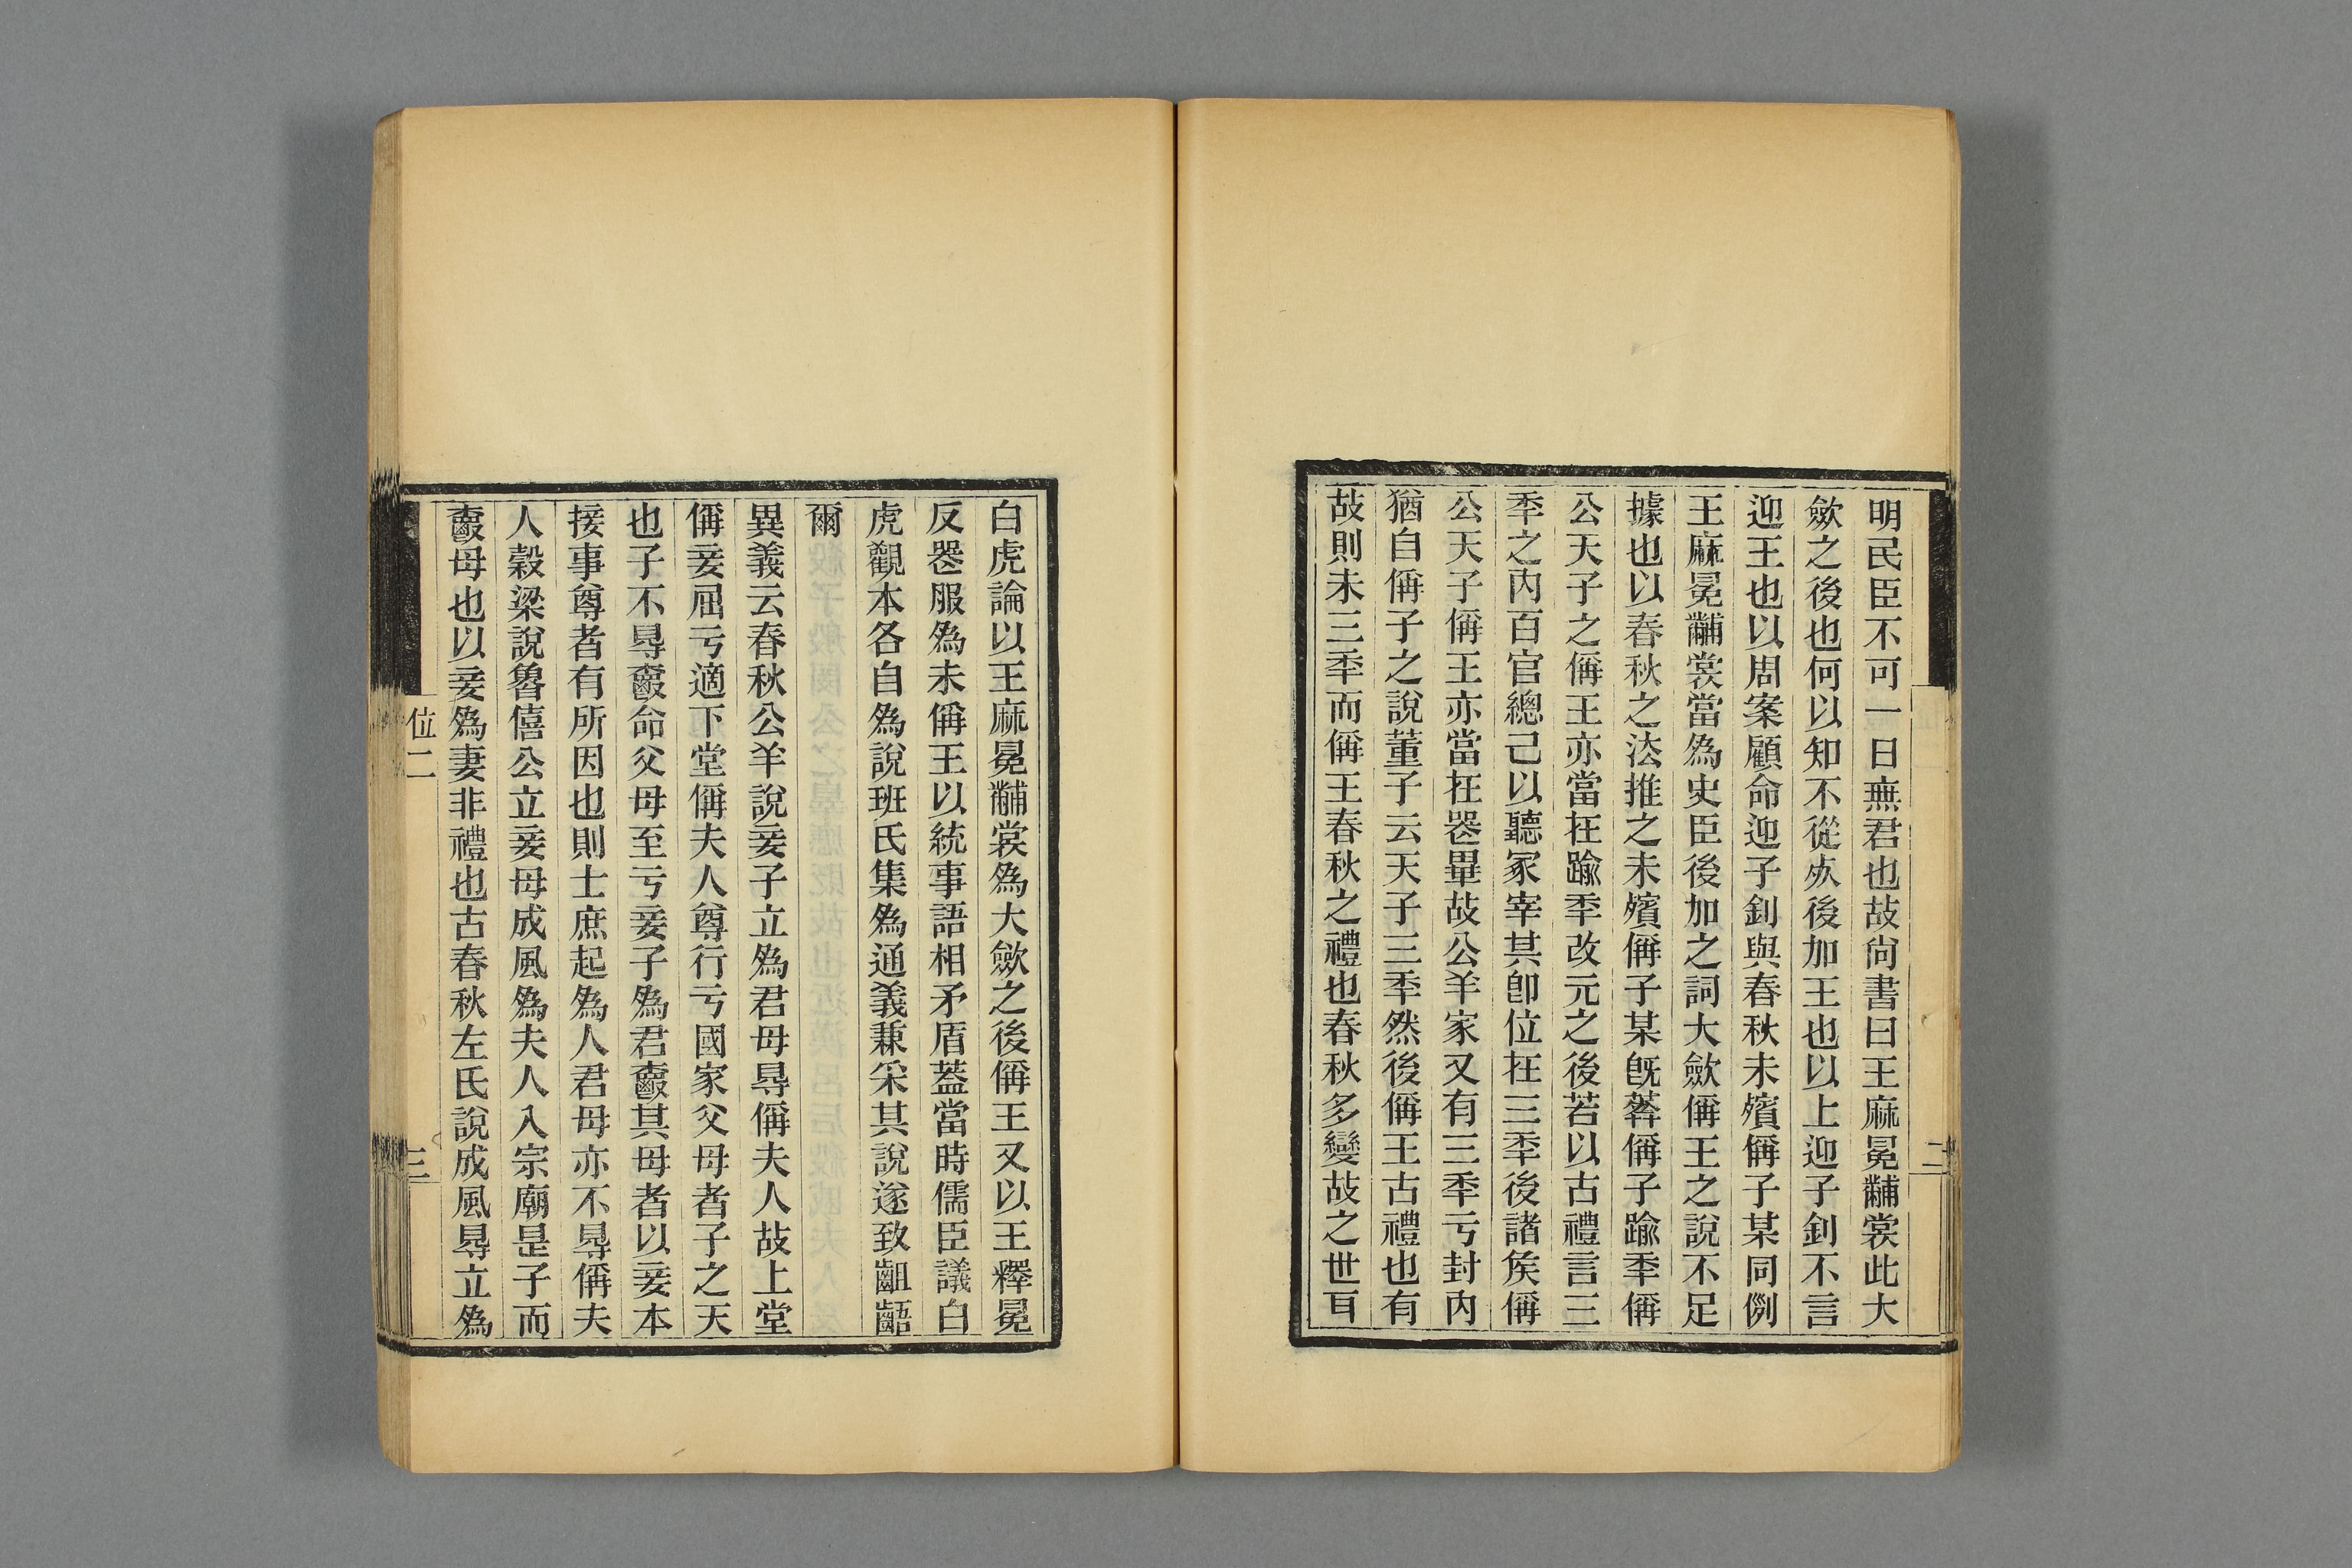 明民臣不可一日無君也故尚書曰王麻冕黼裳此大
斂之後也何以知不從死後加王也以上迎子釗不言
迎王也以周案顧命迎子釗與春秋未殯偁子某同例
王麻冕黼裳當為史臣後加之詞大斂偁王之說不足
據也以春秋之法推之未殯偁子某旣葬偁子踰秊偁
公天子之偁王亦當在踰秊改元之後若以古禮言三
秊之內百官總己以聽冢宰其卽位在三秊後諸矦偁
公天子偁王亦當在喪畢故公羊家又有三秊亏封內
猶自偁子之說董子云天子三秊然後偁王古禮也有
故則未三秊而偁王春秋之禮也春秋多變故之世耳
二
白虎論以王麻冕黼裳為大斂之後偁王又以王釋冕
反喪服為未偁王以統事語相矛盾蓋當時儒臣議白
虎觀本各自為說班氏集為通義兼采其說遂致齟齬
爾
異義云春秋公羊說妾子立為君母得偁夫人故上堂
偁妾屈亏適下堂偁夫人尊行亏國家父母者子之天
也子不得爵命父母至亏妾子為君爵其母者以妾本
接事尊者有所因也則士庶起為人君母亦不得偁夫
人穀梁說魯僖公立妾母成風為夫人入宗廟是子而
爵母也以妾為妻非禮也古春秋左氏說成風得立為
位二
三